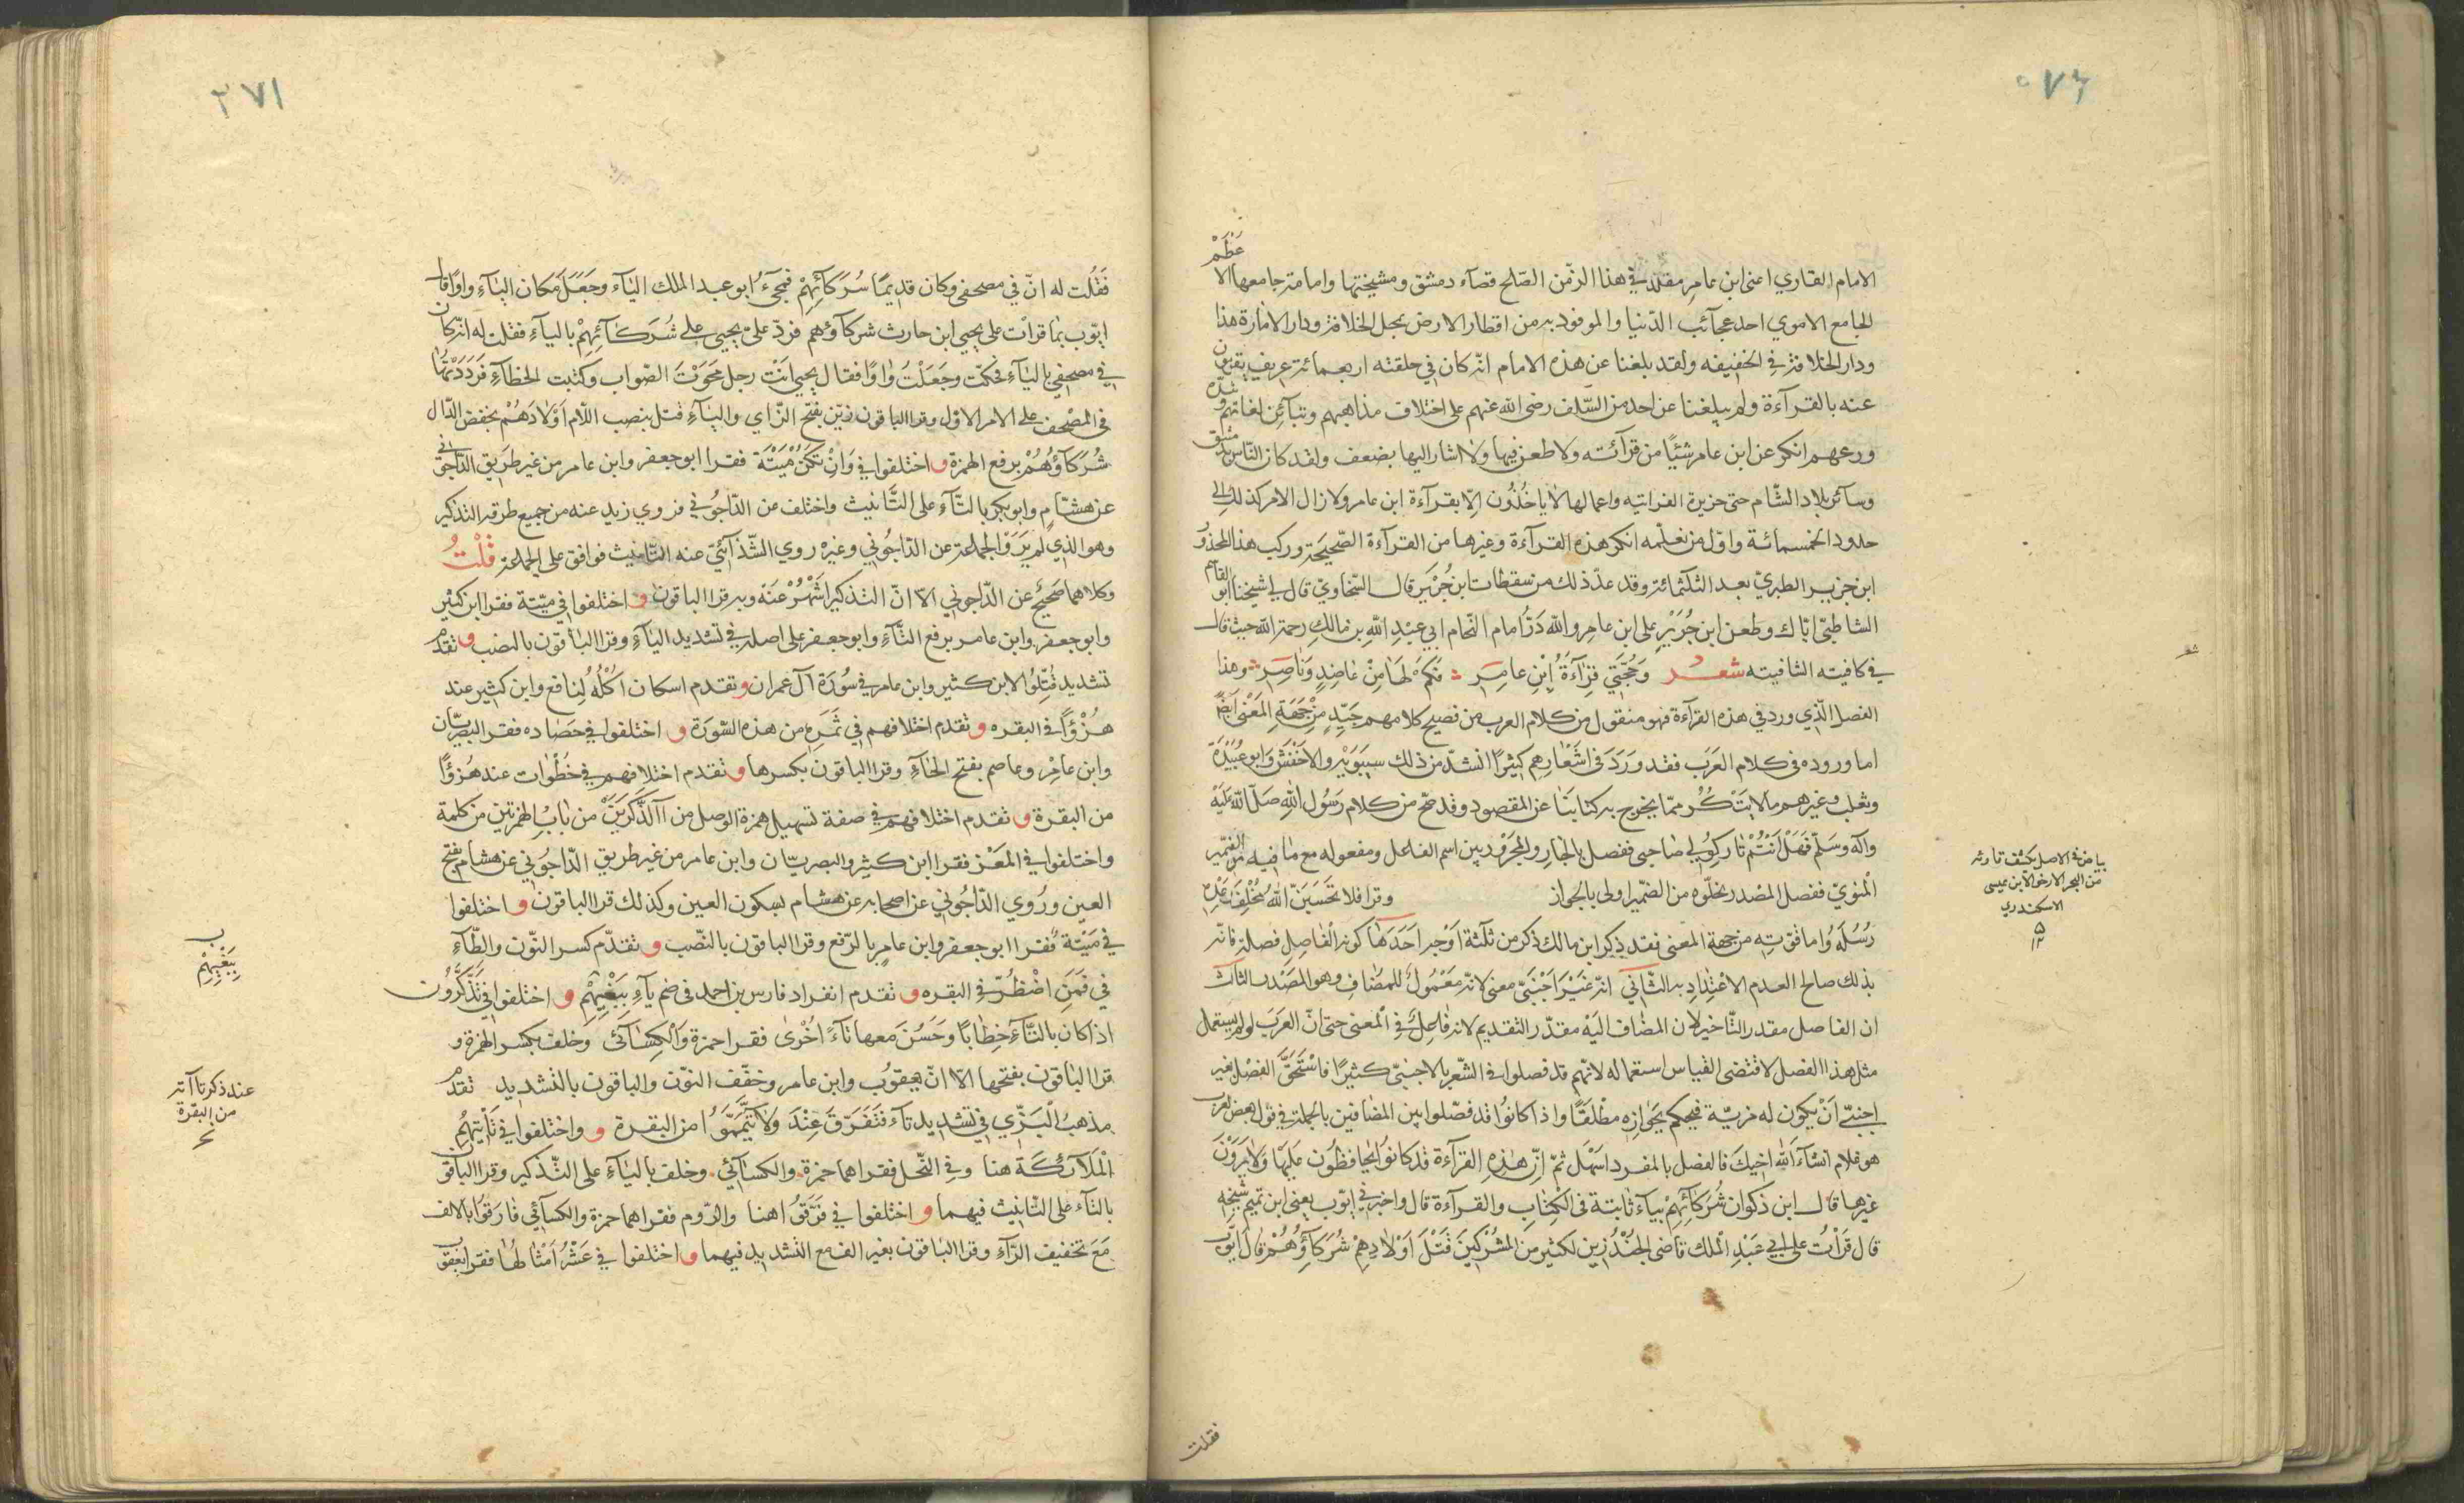 عَظُمْ
الامام القاري اعنى ابن عامر مقلد في هذا الزمن الصّلح قضآء دمشق ومشيختها وامامة جامعها الا
الجامع الاموي احد عجآئب الدّنيا والموفود به من اقطار الارض بمحل الخلافة ودار الامارة هذا
ودار الخلافة في الخفيفه ولقد بلغنا عن هذه الامام انّه كان في حلقته اربعمائة عريف يقومون
عنه بالقرآءة ولم يبلغنا عن احد من السّلف رضى الله عنهم على اختلاف مذاهبهم وتبآئن لغاتهم وشدّة
ورعهم انكر عن ابن عامر شئيًا من قرآئته ولا طعن فيها ولا اشار اليها بضعف ولقد كان النّاس بدمشق
وسآئر بلاد الشّام حتى جزيرة الفراتيه واعمالها لا ياخُذُون الّا بقرآءة ابن عامر ولا زال الامر كذلك الى
حدود الخمسمائة واوّل من نعلمه انكر هذه القرآءة وغيرها من القرآءة الصّحيحة وركب هذا المحذُور
ابن جرير الطبريّ بعد الثلثمائة وقد عدّ ذلك من سقطات ابن جُرَيْر قال السّخاويّ قال لي شيخنا ابو القآسم
الشاطبيّ ايّاك وطعن ابن جُرَيْرٍ على ابن عامر والله دَرُّ امام النّحام ابي عبْدِ اللهِ بن مالك رحمة الله حيث قال
في كافيته الشافيته شعر وَحُجَّتِي قِرَآءَةُ ابْنِ عامِرٍ فَكَمْ لَهَا مِنْ عَاضِدٍ وَنَاصِرٍ وهذا
الفصل الّذي ورد في هذه القرآءة فهو منقول من كلام العرب من فصيح كلامهم جَيّدٍ مِنْ جِهَةِ المَعْنَى ايضًا
اما وروده في كلام العَرَب فقد وَرَدَ في اشَعْارِهِم كثيرًا انشدّ من ذلك سيبَوَيْه والاخفَش وَابو عُبَيْدَة
وثعلب وغيرهم مالا ينكر ممّا يخرج به كتابنَا عن المقصود وقد صحّ من كلام رَسُول الله صَلّى الله عَلَيْه
وآله وسَلّم فَهَلْ انْتُمْ تَارِكُو لِي صَاحبي ففصل بالجَار والمَجرُور بين اسم الفاعل ومفعوله مع ما فيه من الضّمير
الْمنويّ ففصل المصْدر بخلّوه من الضمّير اولى بالجواز وقرا فلا تحَسَبَنّ الله مُخْلِفَ وَعْدِهِ
رُسُلَهُ وُاما قوّته من جهة المعنى فقد ذكر ابن مالك ذكر من ثلثة اَوْجه اَحَدَهَا كونه الْفَاصِل فضلة فانّه
بذلك صالح العدم الاعْتِدَادِ به الثّاني انّه غَيْرَ اَجْنَبَيّ معنى لانّه مَعْمُولٌ للمضَاف وهو المصْدر الثالث
ان الفاصل مقدر التّاخير لان المضاف اليَه مقدّر التقديم لانه فاعِل في الْمعنى حتى انّ العرَبَ لو لم يستعمل
مثل هذا الفصل لاقتضى القياس استعماله لانّهم قد فصلوا في الشّعر بالاجنبّى كثيرًا فاسْتَحقَّ الفصْل بغير
اجنبيّ اَنْ يكون له مزيّة فيحكم بَجَوازِهِ مطْلقًا واذا كانُوا قد فصّلوا بين المضَافين بالجملة في قول بعض العرب
هو غلام انشآءَ الله اخيكَ فالفصل بالمفرد اسَهْل ثمّ اِنّ هَذِهِ القرآءة قدْ كانوا يُحافظُون عليهَا وَلا يَرَوْنَ
غيرها قال ابن ذكوان شُرَكآئِهِمْ بيآء ثابتة في الْكِتَاب والقرآءة قال واخبرني ايّوب يعنى ابن تميم شَيخه
قال قَرَاتُ على ابي عَبْدِ الْملك قاضى الجُنْدُ زين لكثير من المشُركينَ قَتْلَ اَوْلادِهِمْ شُرَكآؤُهُمْ قال ايّوب
فقلت
شعر
بياض في الاصل بكشف قارئه
من البحر الازخر لابن عيسى
الاسكندري
فَقُلْت له انّ في مصحفى وكان قديمًا شُرَكآئِهِمْ فمحَى ابو عبد الملك اليآء وَجَعَلَ مكان اليَآءِ واوًا قال
ايّوب ثم قرائت على يحيى ابن حارث شركآؤهم فردّ علىّ يحيى على شُرَكآئِهِمْ باليآءِ فقلت له انّه كان
في مصحفي باليآءِ فحكّت وجَعَلْتُ وَاوًا فقال يحيى انْت رجل محَوَتْ الصّواب وكتبت الخطآءِ فَرَدَدْتُهَا
في المصْحف على الامر الاوّل وقرا الباقون زيّن بفتح الزّاي واليآءِ قتل بنصب اللّام اَوْلادَهُمْ بخفض الدّال
شُركآؤُهُمْ برفع الهمزة و اختلفوا في وَانْ تكن مَيْتَة فقرا ابو جعفر وابن عامر من غير طريق الدّاجونى
عن هشام وابو بكر بالتّآءِ على التّانيث واختلف عن الدّاجُوني فروي زيد عنه من جميع طرقه التذكير
وهو الذي لم يَرَو الجماعة عن الدّاجُوني وغيره روي الشّذآئيّ عنه التّانيث فوافق على الجماعة قُلْتُ
وكلاهما صَحيحٌ عن الدّاجوني الّا انّ التذكير اشَهْرُ عَنْه وبه قرا الباقون و اختلفوا في ميّتة فقرا ابن كثير
وابو جعفر وابن عامر برفع التّآءِ وابو جعفر على اصله في تشديد اليآءِ وقرا البَاقون بالنصب و تقدّم
تشديد قَتَّلُوا لابن كثير وابن عامر في سُورَة آل عمران و تقدم اسكان اُكْلُهُ لِنَافع وابن كثير عند
هُزُؤًا في البقره و تقدم اختلافهم في ثَمَرِهِ من هذه السّورَة و اختلفوا في حَصَاده فقرا البصريّان
وابن عامِر وعاصم بفتح الحآءِ وقرا الباقون بكسرها و تقدم اختلافهم في خطُوات عند هُزؤًا
من البقرة و تقدم اختلافهم في صفة تسهيل همزة الوصل من آالذّكَرَينْ من بَابِ الهمزتين من كلمة
واختلفوا في المعْز فقرا ابن كثير والبصريّان وابن عامر من غير طريق الدّاجُوني عن هشام بفتح
العين ورُوي الدّاجُوني عن اصحابه عن هشام بسكون العين وكذلك قرا الباقون و اختلفوا
في مَيْتة فقرا ابو جعفر وابن عامر بالرّفع وقرا الباقون بالنّصب و تقدّم كسر النّون والطّآءِ
في فَمَنِ اضْطُرّ في البقره و تقدم انفراد فارس بن احمد في ضم يآءِ بِبَغْيِهِمْ و اختلفوا في تَذَّكَّرُون
اذا كان بالتّآءِ خِطابًا وَحَسُنَ معها تآءً اُخْرَى فقرا حمزة وَالْكِسَآئي وَخلف بكسر الهمزة و
قرا البَاقون بفتحها الّا انّ يعقوُب وابن عامر وخفّف النوّن والباقون بالتشديد تقدّم
مذهبُ الْبَزّي في تشديد تآءِ فَتَفَرّقَ عِنْدَ وَلا تَيَمَّمُوا من البقرة و واختلفوا في تَأْتِيَهُمُ
الْمَلآئكَة هنا وفي النّحل فقراهما حمزة والكسَآئي وخلف باليآءِ على التّذكير وقرا الباقون
بالتآء على التّانيث فيهما و اختلفوا في فَرّقُوا هنا والرّوم فقراهما حمزة والكسآئي فَارَقوُا بالالف
مَعَ تخفيف الرّآءِ وقرا البَاقون بغير الف مع التشديد فيهما و اختلفوا في عَشْرُ اَمْثَالهُا فقرا يعقوب
ب
بِبَغْيِهِمْ
عند ذكر تاآته
من البقرة
٢٧١